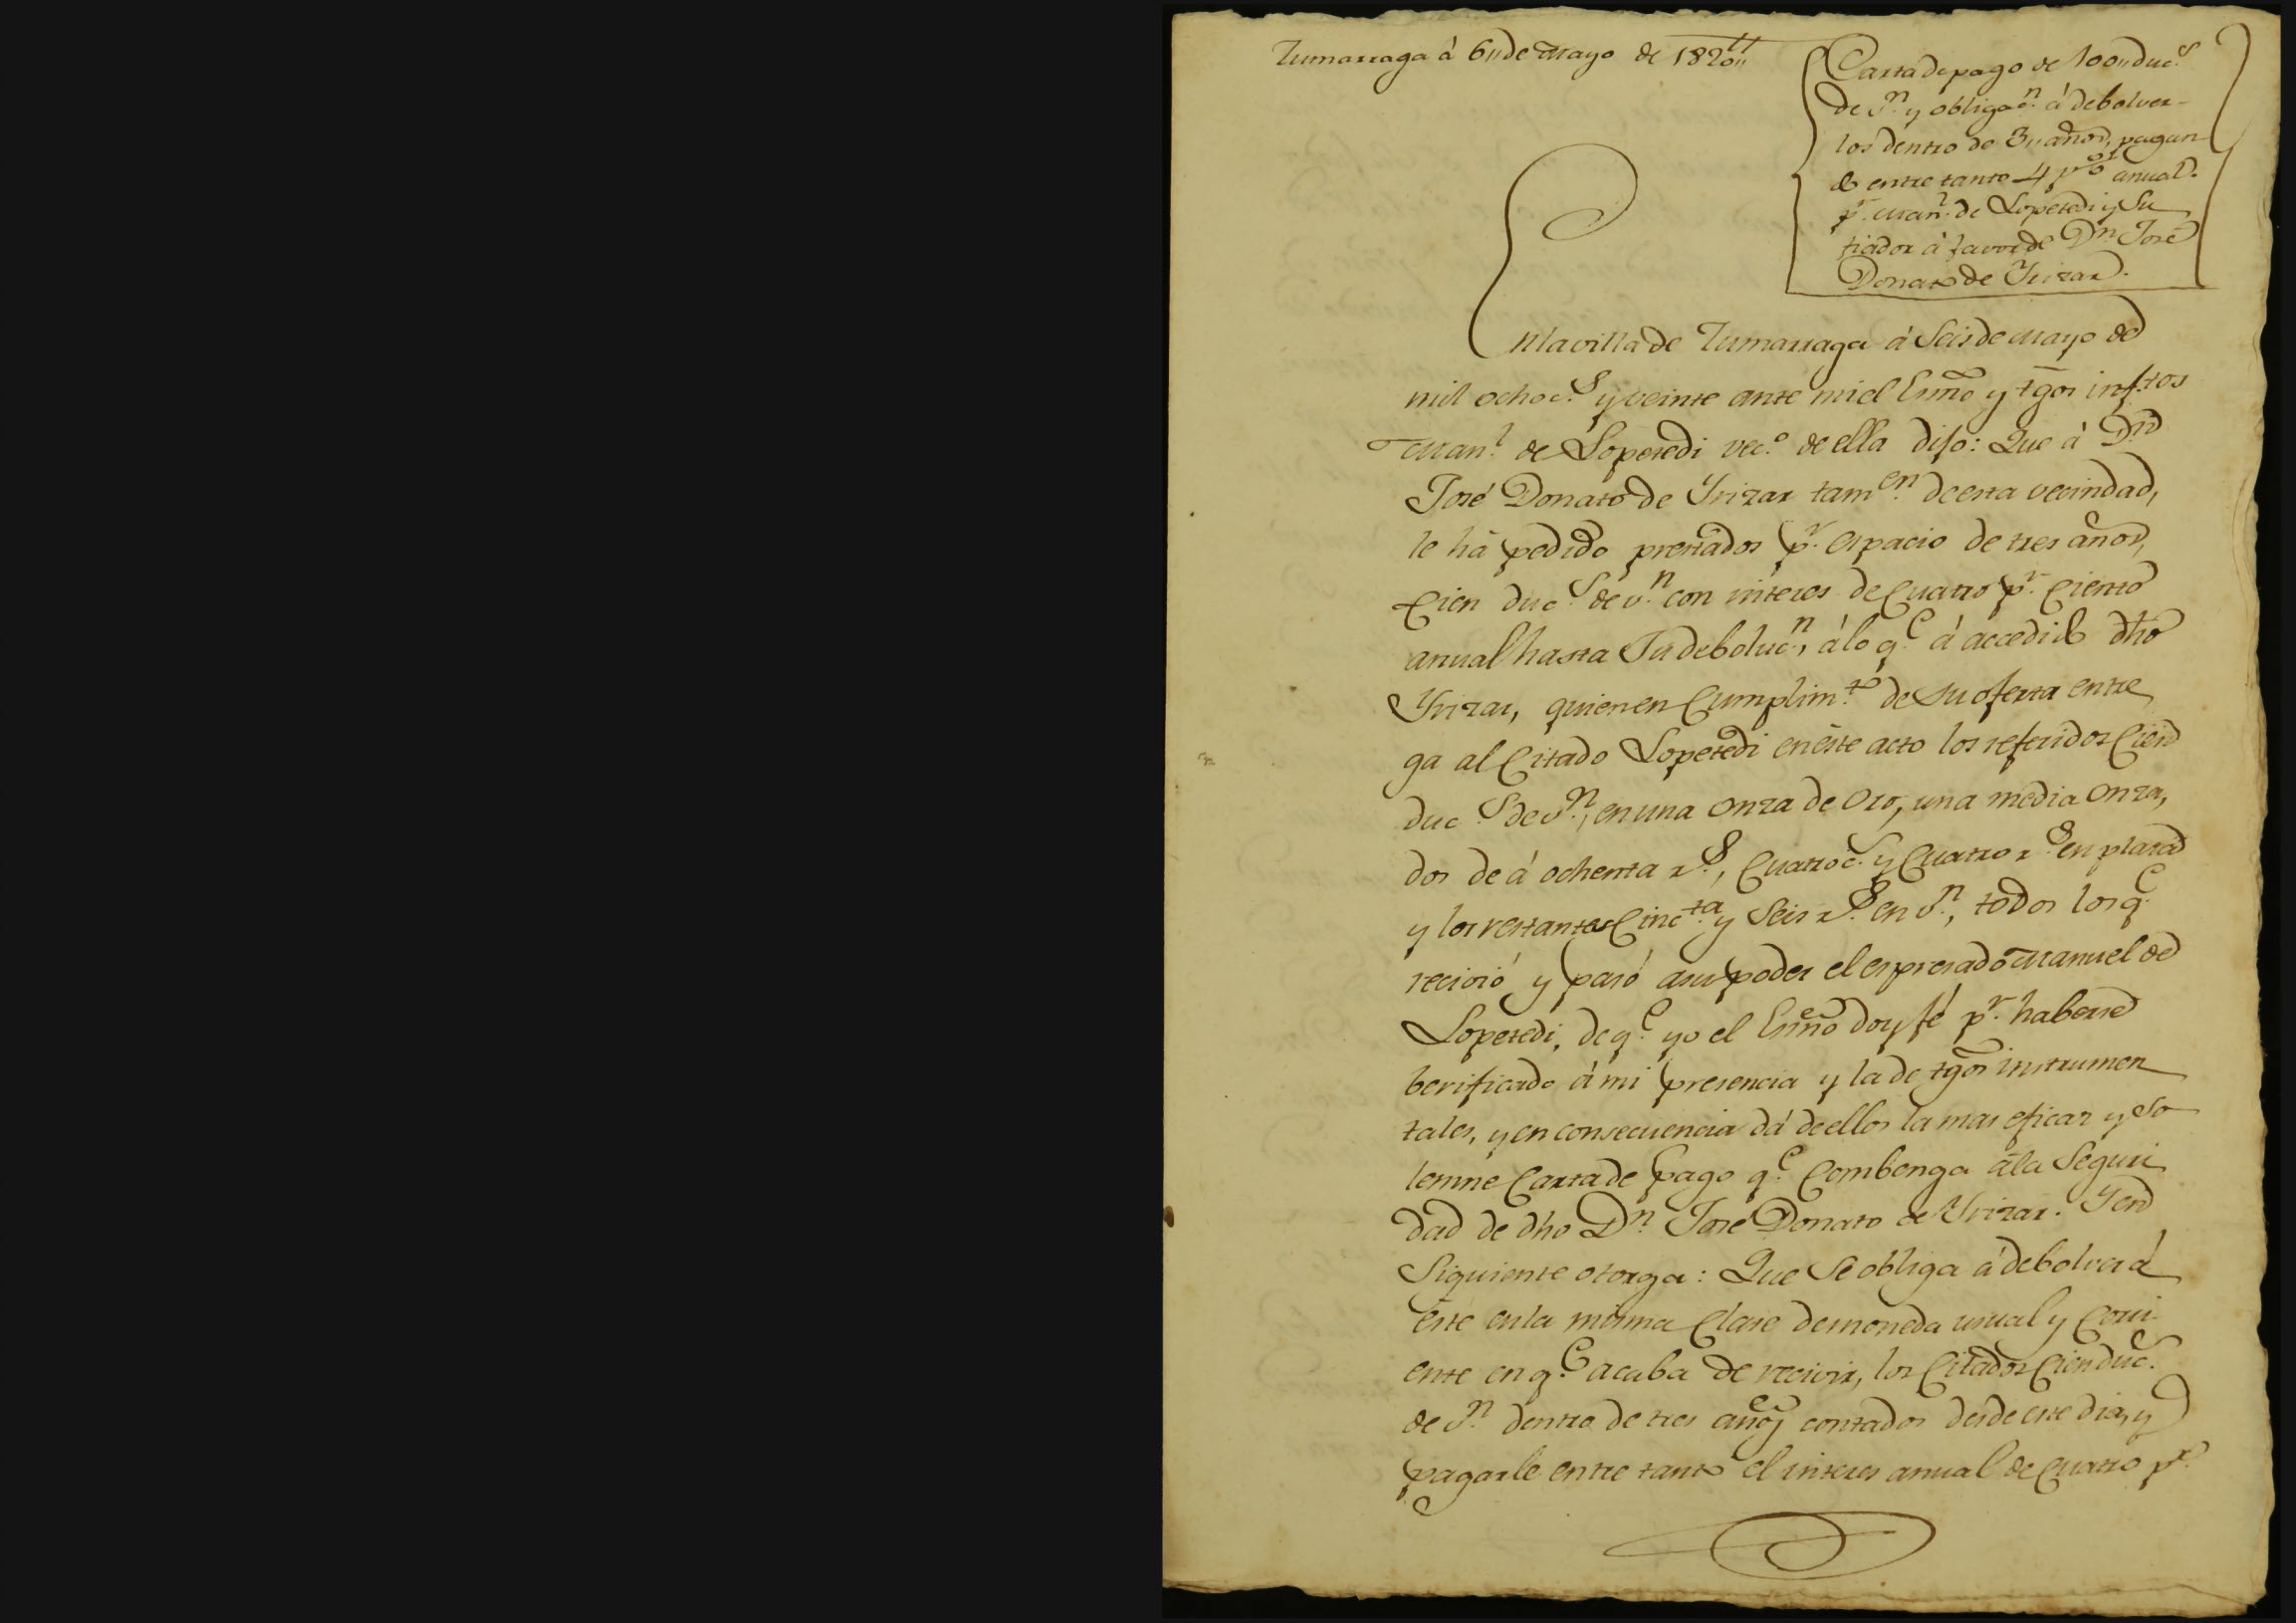 Zumarraga á 6,, de Mayo de 1820,,
Carta de pago de 100,, duc.s
de v.n y obligac.n á debolver-
los dentro de 3,, años, pagan
do entre tanto 4 p% anual.
p.r Man.l de Lopetedi y su
fiador á favor de D.n José
Donato de Yrizar.
En la villa de Zumarraga á Seis de Mayo de
mil ochoc.s y veinte ante mi el Esño y tgos insftos
Man.l de Lopetedi vec.o de ella dijo: Que á D.n
José Donato de Yrizar tam.en de esta vecindad,
le há pedido prestados p.r espacio de tres años,
Cien duc.s de v.n con interes de Cuatro p.r Ciento
anual hasta su deboluc.n, á lo q.e á accedido dho
Yrizar, quien en Cumplim.to de su oferta entre
ga al Citado Lopetedi en éste acto los referidos Cien
duc.s de v.n, en una Onza de Oro, una media Onza,
dos de á ochenta r.s, Cuatroc.s y Cuatro r.s en plata
y los restantes Cinc.ta y Seis r.s en v.n, todos los q.e
recivió y pasó a su poder el espresado Manuel de
Lopetedi, de q.e yo el Esño doy fé p.r haberse
berificado á mi presencia y la de tgos instrumen
tales, y en consecuencia dá de ellos la mas eficaz y so
lemne Carta de pago q.e Combenga á la Seguri
dad de dho D.n José Donato de Yrizar. Y en
Siguiente otorga: Que Se obliga á debolver á
éste en la misma Clase de moneda usual y Corri
ente en q.e acaba de recivir, los Citados Cien duc.s
de v.n dentro de tres años contados desde este dia, y
pagarle entre tanto el interes anual de Cuatro p.r